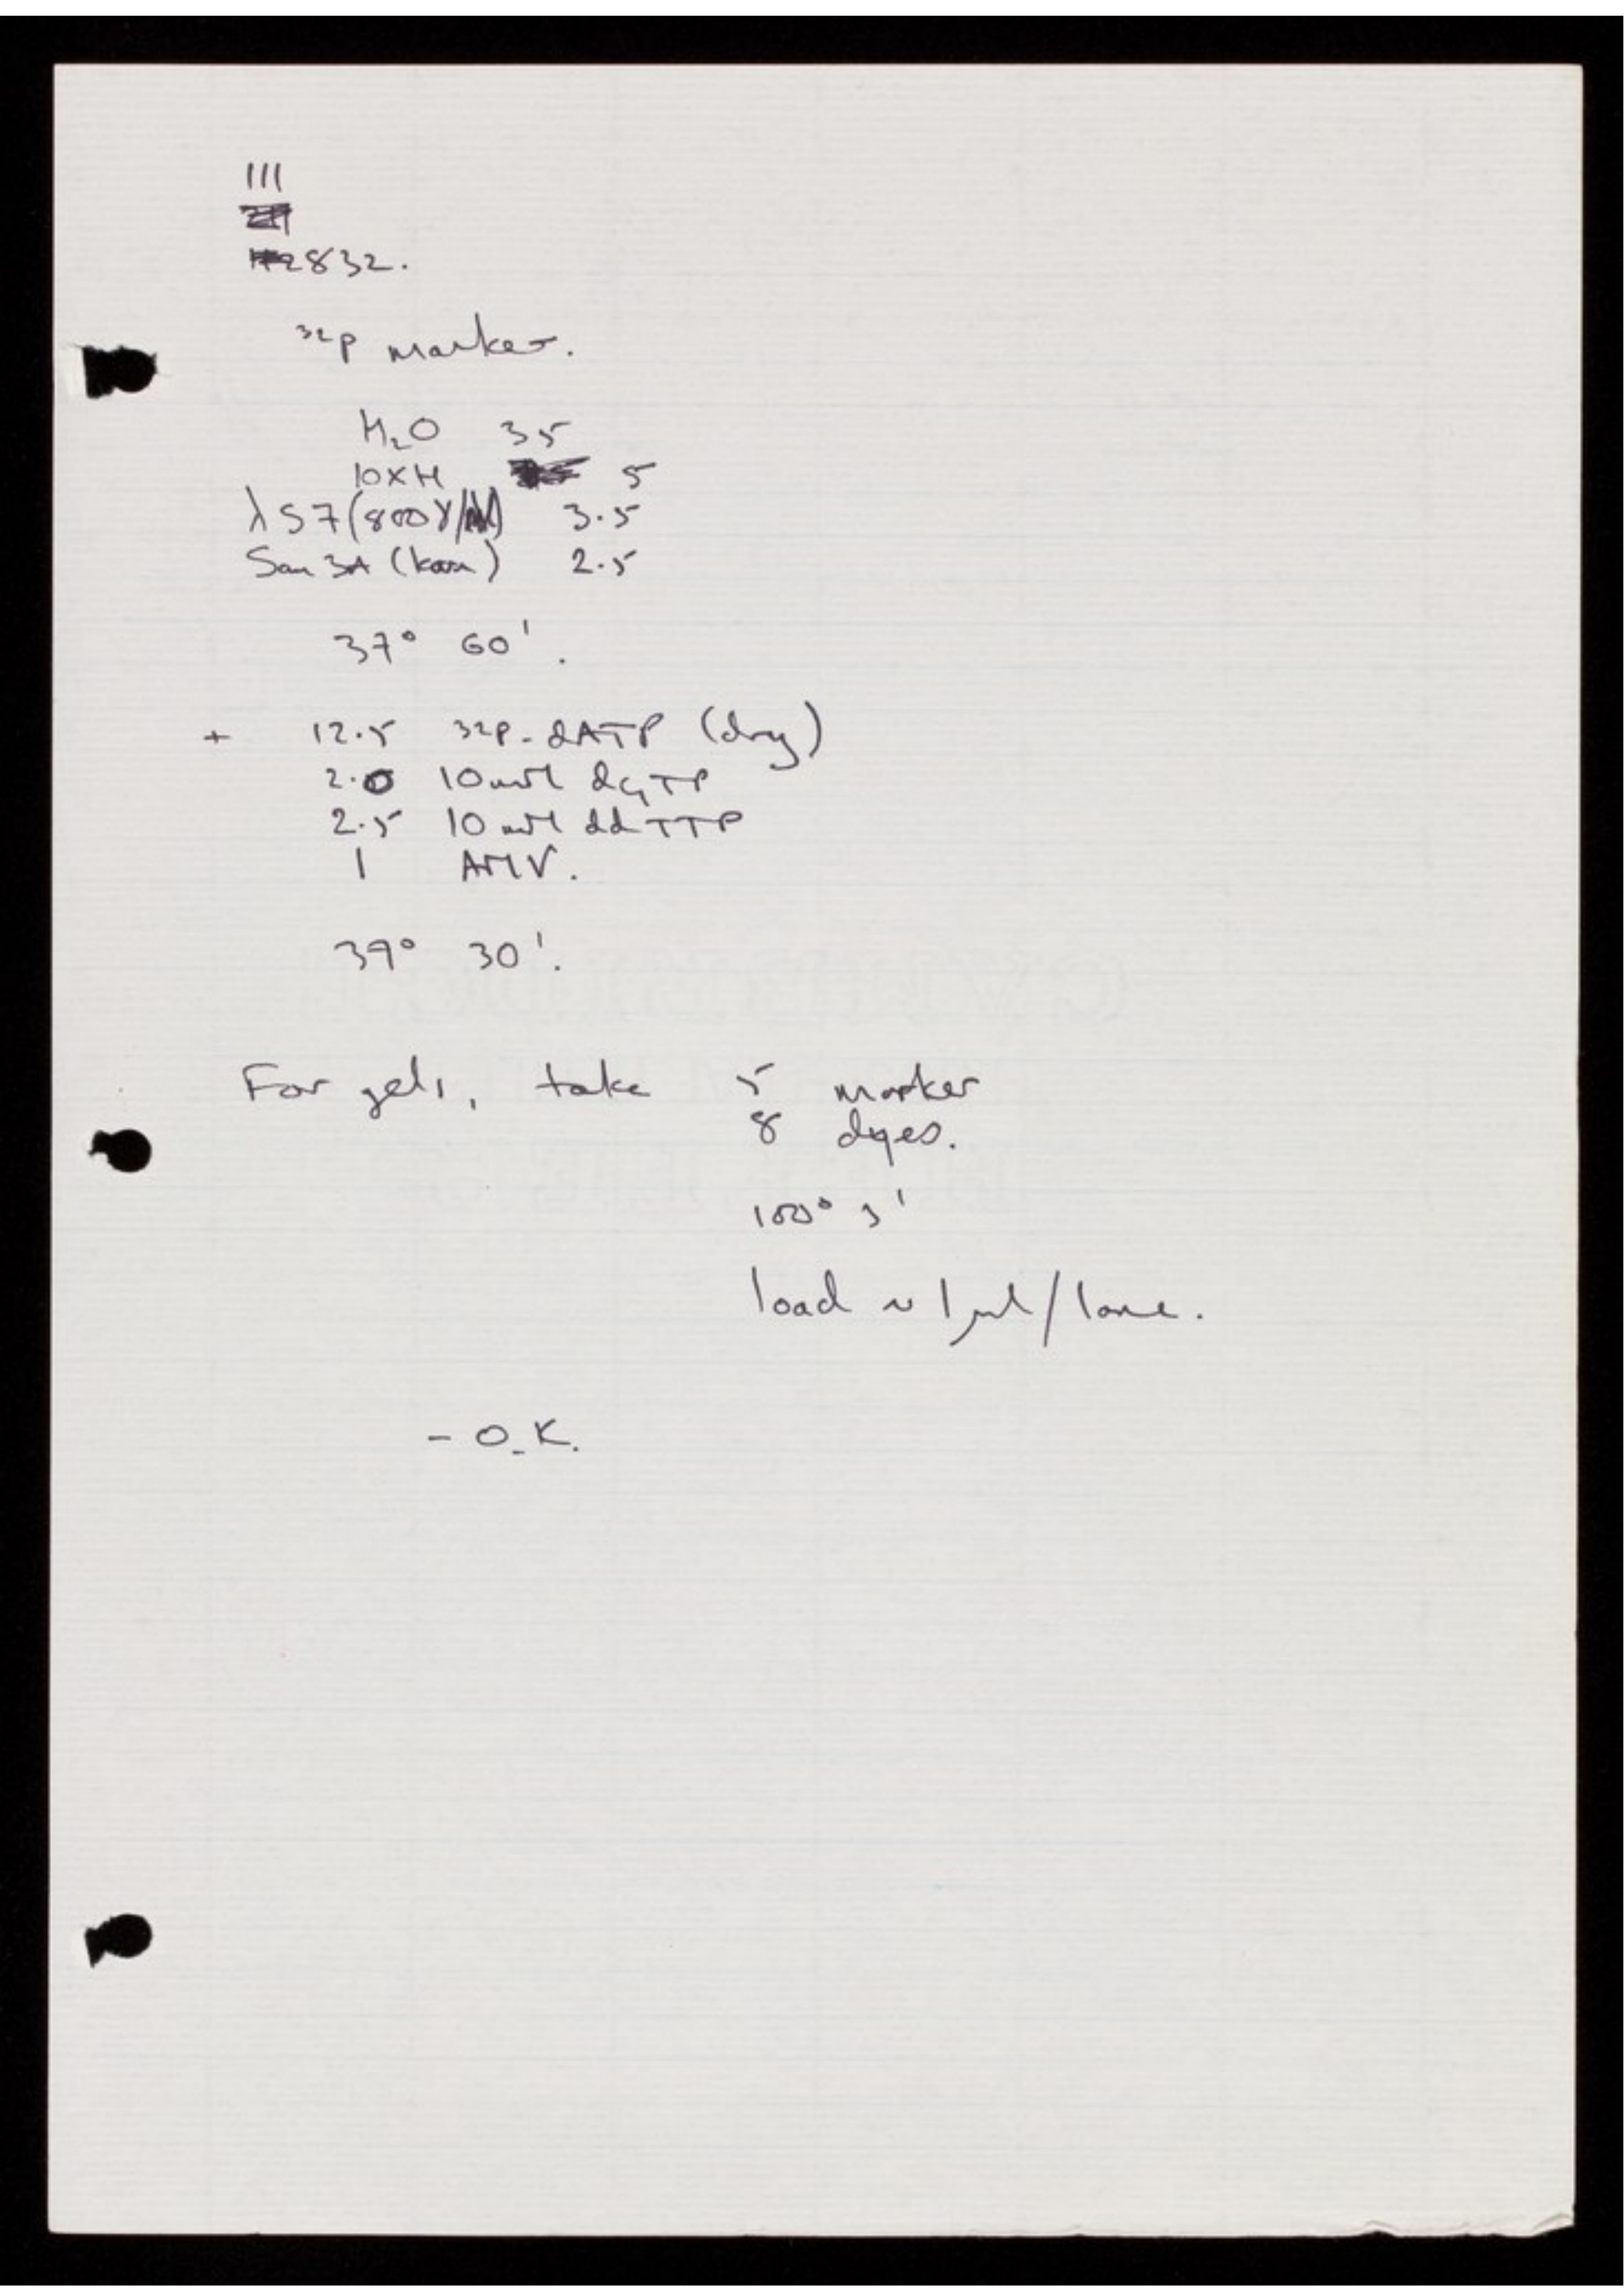 111
2832.
32P marker.
H2O 35
10XH 5
λ S7 (800γ/ml) 3.5
Sau 3A (karn) 2.5
37° 60'.
+ 12.5 32P-dATP (dry)
2.0 10mM dGTP
2.5 10mM ddTTP
1 AMV.
39° 30'.
For gels, take 5 marker
8 dyes.
100° 3'
load ~1μl/lane.
- O.K.